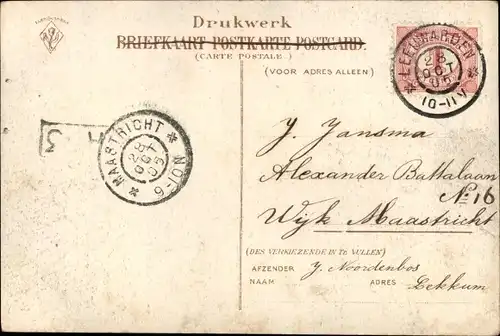 Drukwerk
BRIEFKAART POSTKARTE POSTCARD.
(CARTE POSTALE)
(VOOR ADRES ALLEEN)
LEEUWARDEN
28
OCT
10-11V
MAASTRICHT
28
OCT
6-10N
J. Jansma
Alexander Battalaan
No 16
Wijk Maastricht
(DES VERKIEZENDE IN TE VULLEN)
AFZENDER J. Noordenbos
NAAM ADRES Lekkum